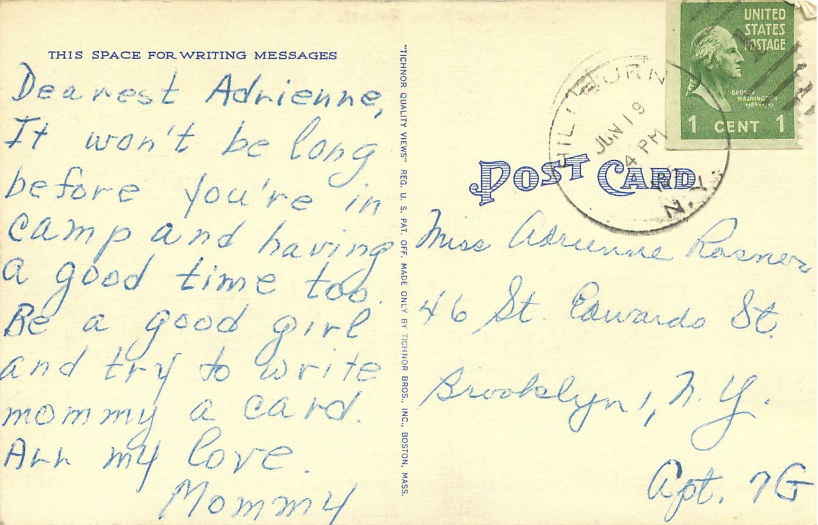 THIS SPACE FOR WRITING MESSAGES
Dearest Adrienne,
It won't be long
before you're in
camp and having
a good time too.
Be a good girl
and try to write
mommy a card.
All my love.
Mommy
"TICHNOR QUALITY VIEWS" REG. U. S. PAT. OFF. MADE ONLY BY TICHNOR BROS., INC., BOSTON, MASS.
UNITED
STATES
POSTAGE
GEORGE
WASHINGTON
1 CENT 1
HILLBURN
JUN 19
4 PM
N.Y.
POST CARD
Miss Adrienne Rosner
46 St. Edwards St.
Brooklyn 1, N. Y.
Apt. 7G